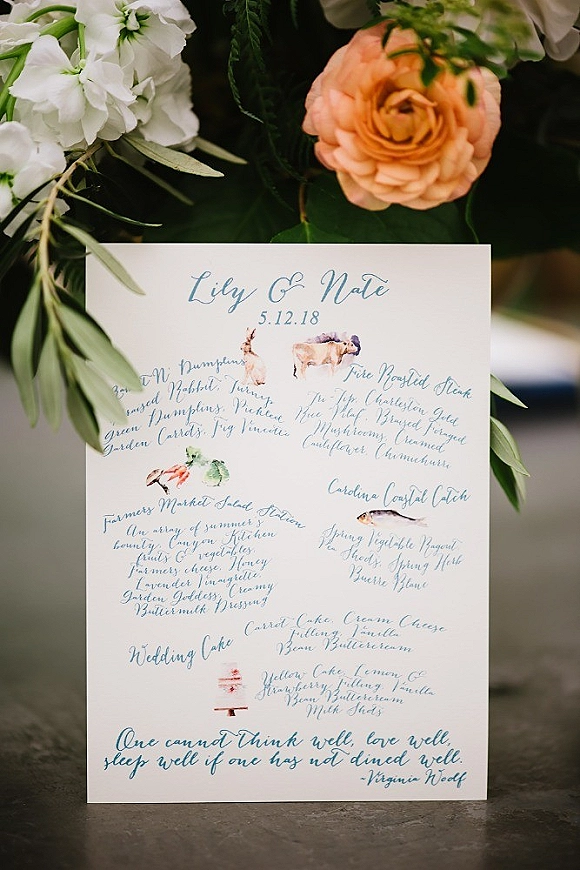 Lily & Nate
5.12.18
Rabbit N' Dumplins
Braised Rabbit, Turnip
Green Dumplins, Pickled
Garden Carrots, Fig Vincotto
Fire Roasted Steak
Tri-Tip, Charleston Gold
Rice Pilaf, Braised Foraged
Mushrooms, Creamed
Cauliflower, Chimichurri
Farmers Market Salad Station
An array of summer's
bounty, Canyon Kitchen
fruits & vegetables,
Farmers cheese, Honey
Lavender Vinaigrette,
Garden Goddess, Creamy
Buttermilk Dressing
Carolina Coastal Catch
Spring Vegetable Ragout
Pea Shoots, Spring Herb
Buerre Blanc
Wedding Cake
Carrot Cake, Cream Cheese
Filling, Vanilla
Bean Buttercream
Yellow Cake, Lemon &
Strawberry Filling, Vanilla
Bean Buttercream
Milk Shots
One cannot think well, love well,
sleep well if one has not dined well.
-Virginia Woolf